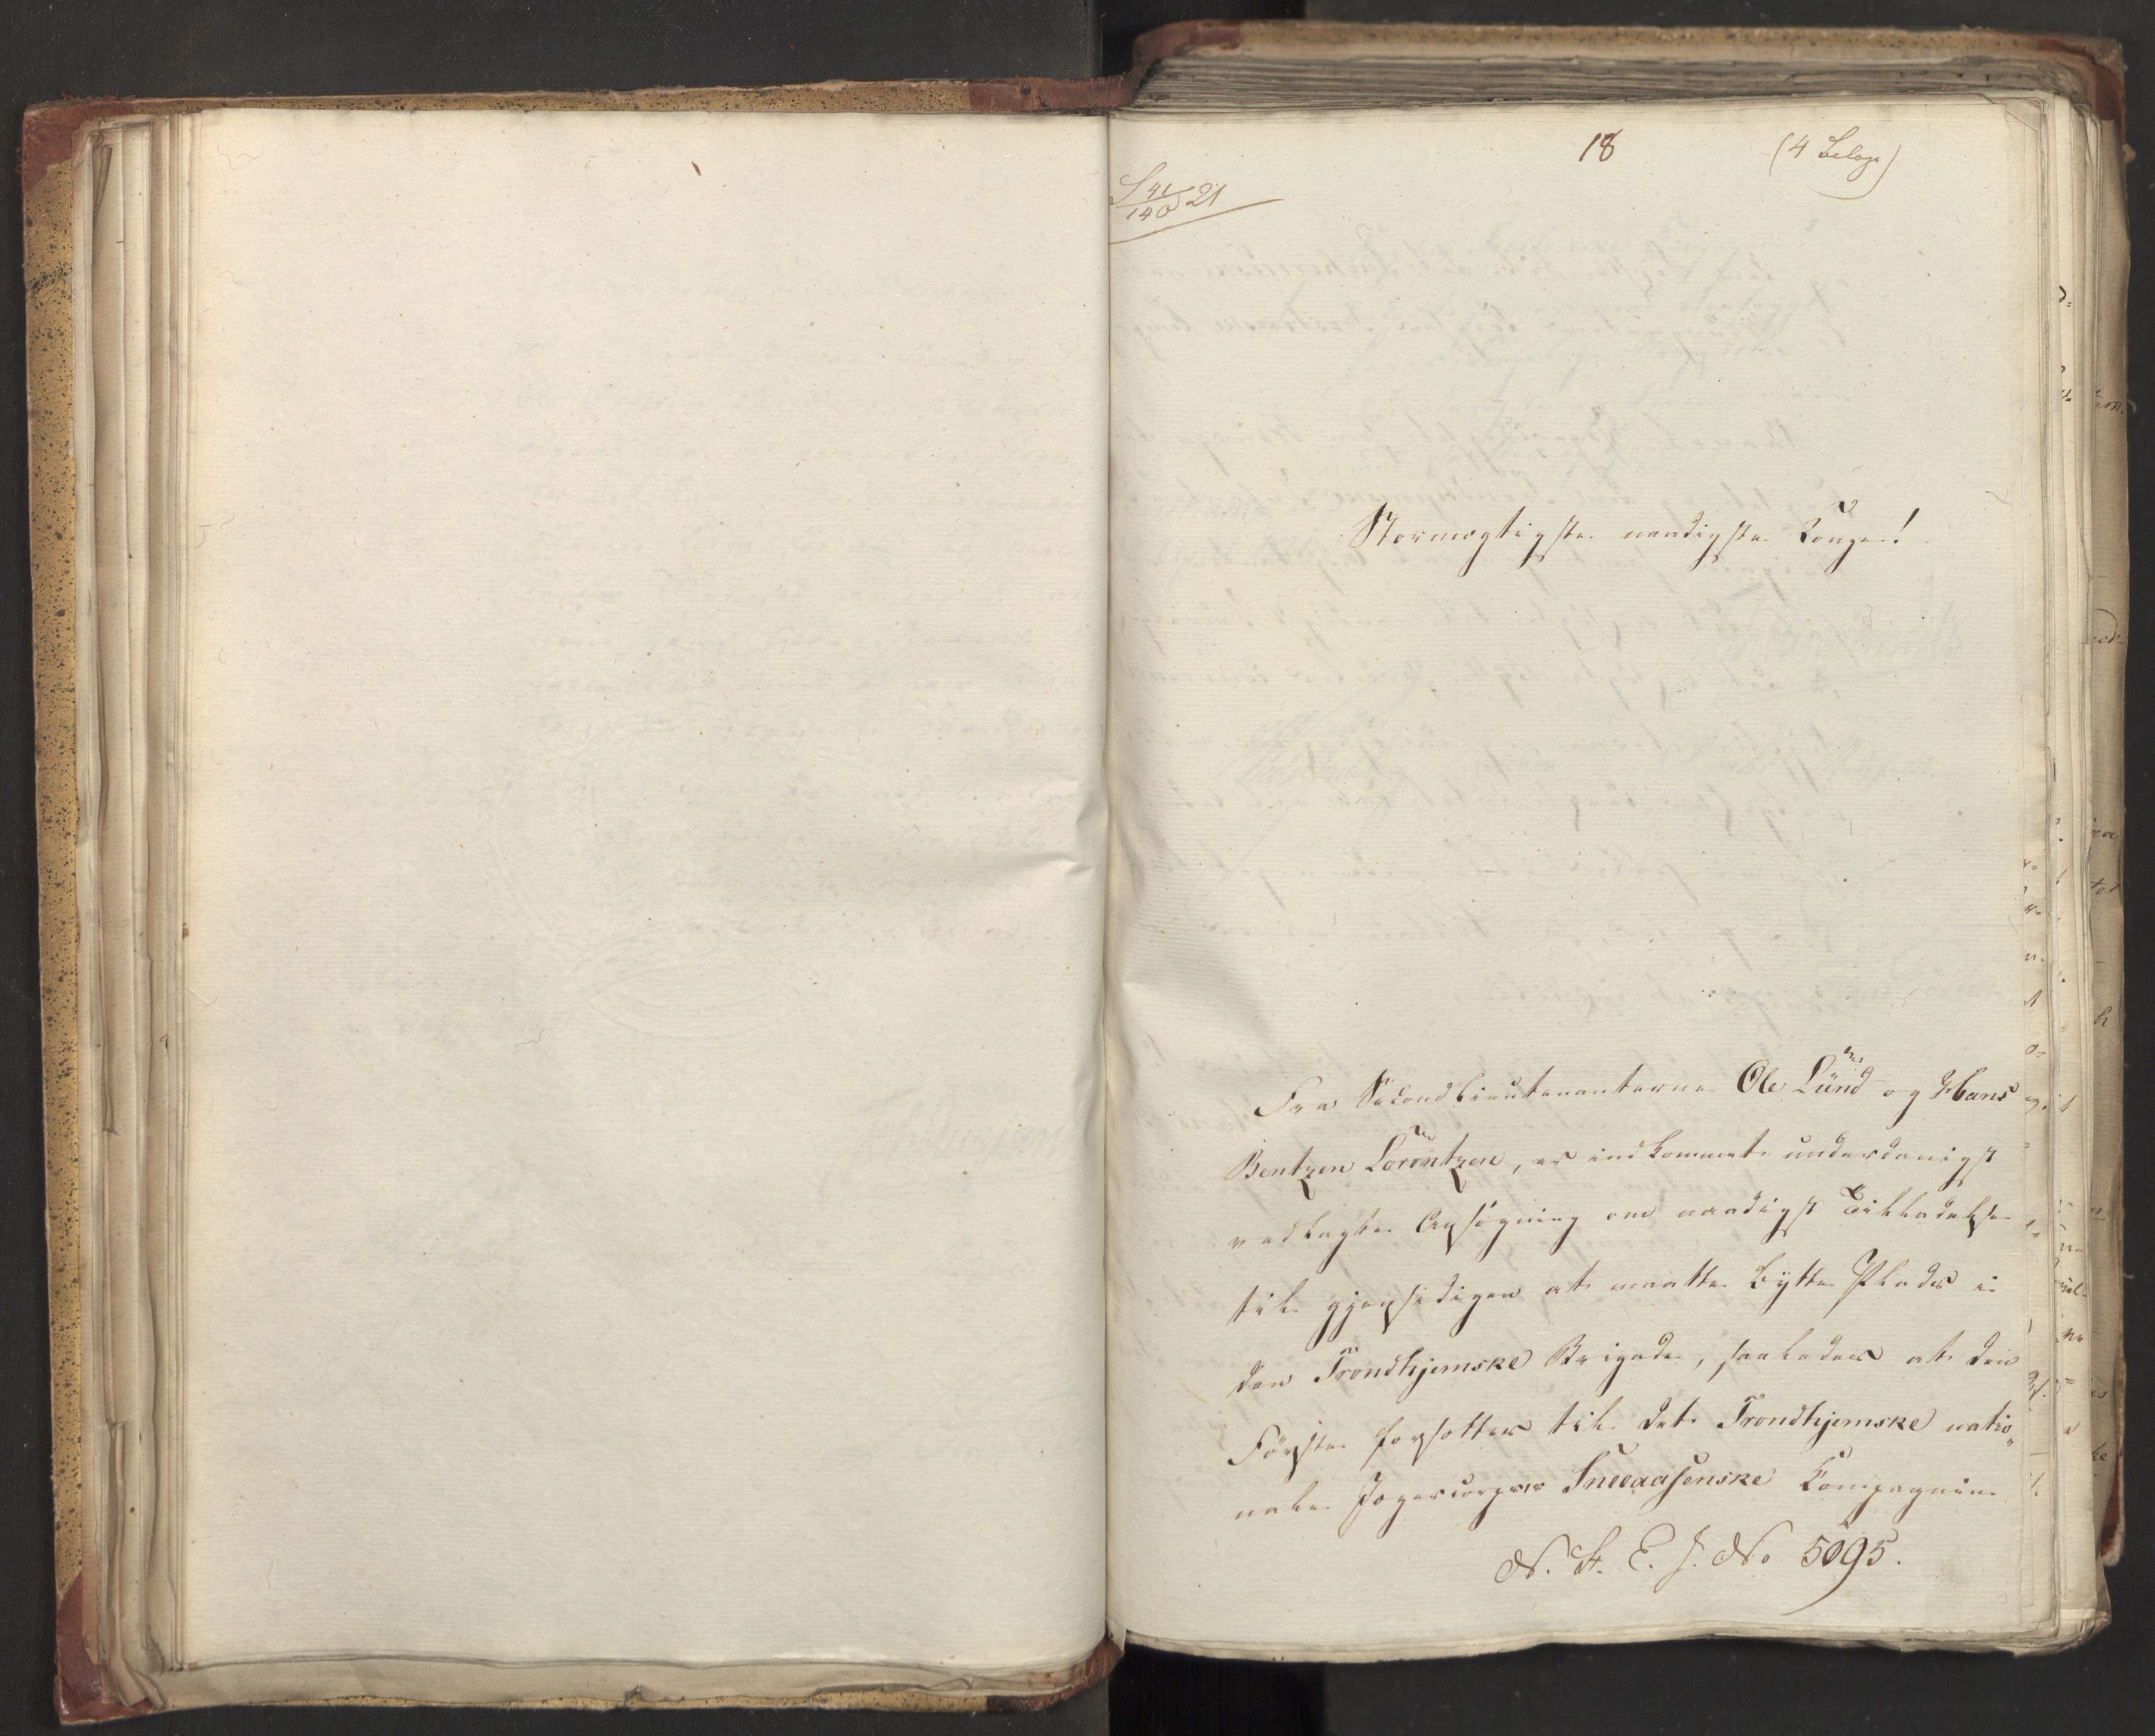 18 (4 Belage)
S 41/140 21
Stormægtigste naadigste Konge!
Fra Secondlieutenanterne Ole Lund og Hans
Bentzen Lorentzen, er indkommet underdanigst
vedlagte Ansøgning om naadigst Tilladelse
til gjensidigen at maatte bytte Plads i
den Trondhjemske Brigade, saaledes at den
Første forsættes til det Trondhjemske natio„
nale Jægercorpses Sneeaasenske Compagnie
N. St. E. J. No 5095.